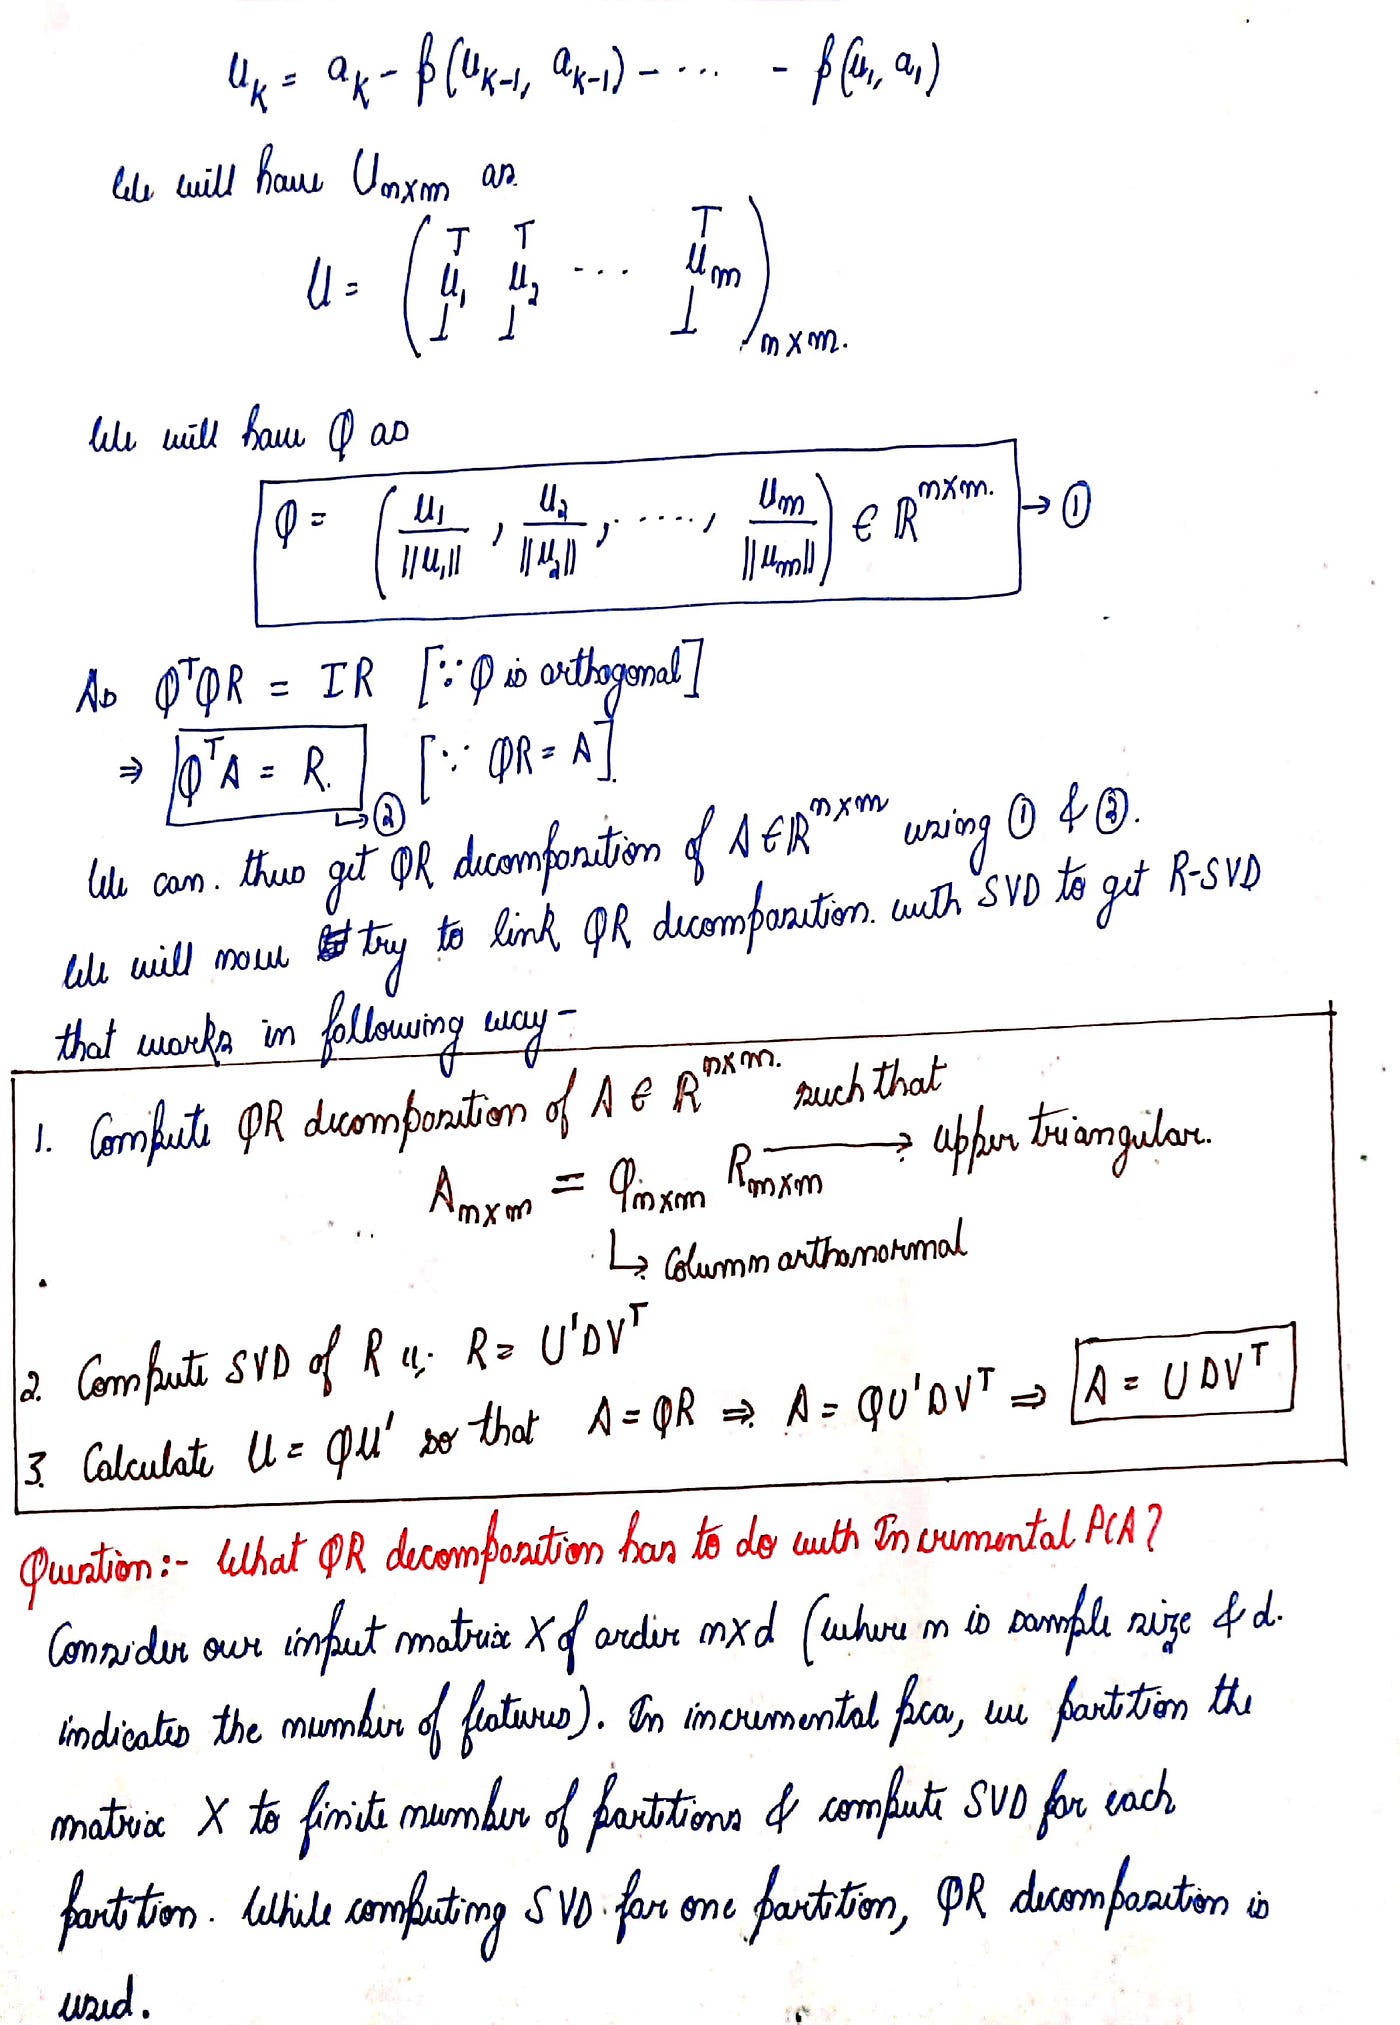 u_k = a_k - p(u_{k-1}, a_{k-1}) - ... - p(u_1, a_1)
We will have U_{n×m} as
U = (u_1 u_2 ... u_m)_{n×m}.
We will have Q as
Q = (u_1/||u_1||, u_2/||u_2||, ....., u_m/||u_m||) ∈ R^{n×m}. → ①
As Q^T QR = IR [∵ Q is orthogonal]
⇒ Q^T A = R. [∵ QR = A]
↳ ②
We can. thus get QR decomposition of A ∈ R^{n×m} using ① & ②.
We will now try to link QR decomposition. with SVD to get R-SVD
that works in following way -
1. Compute QR decomposition of A ∈ R^{n×m}. such that
A_{n×m} = Q_{n×m} R_{m×m} → upper triangular.
↳ Column orthonormal
2. Compute SVD of R i.e. R = U'DV^T
3. Calculate U = QU' so that A = QR ⇒ A = QU'DV^T ⇒ A = UDV^T
Question:- What QR decomposition has to do with Incremental PCA?
Consider our input matrix X of order n×d (where n is sample size & d.
indicates the number of features). In incremental pca, we partition the
matrix X to finite number of partitions & compute SVD for each
partition. While computing SVD. for one partition, QR decomposition is
used.